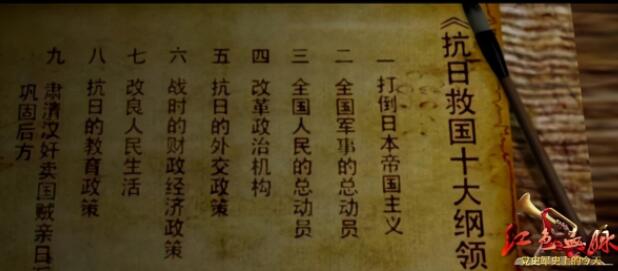 《抗日救国十大纲领
一 打倒日本帝国主义
二 全国军事的总动员
三 全国人民的总动员
四 改革政治机构
五 抗日的外交政策
六 战时的财政经济政策
七 改良人民生活
八 抗日的教育政策
九 肃清汉奸卖国贼亲日
巩固后方
红色血脉
党史军史上的今天